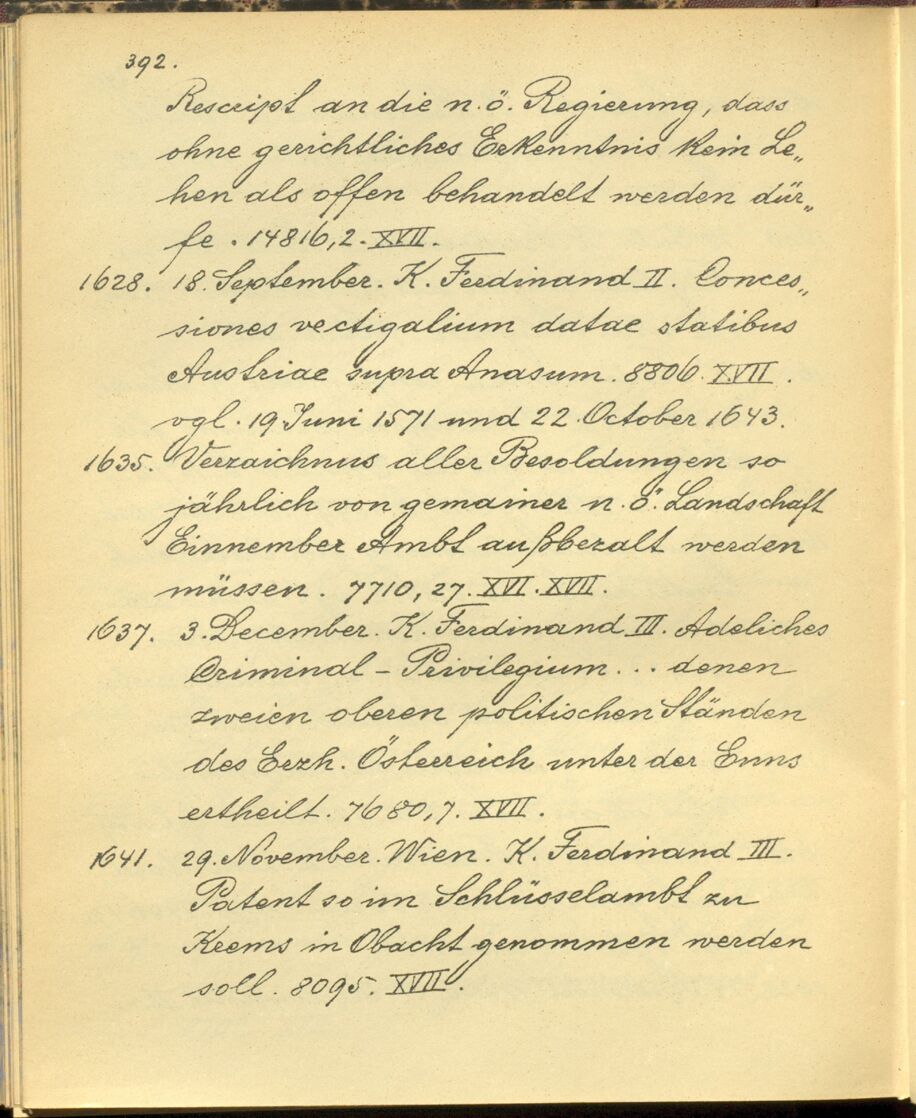 392.
Rescript an die n. ö. Regierung, dass
ohne gerichtliches Erkenntnis kein Le„
hen als offen behandelt werden dür„
fe. 14816,2. XVII.
1628. 18. September. K. Ferdinand II. Conces„
siones vectigalium datae statibus
Austriae supra Anasum. 8806. XVII.
vgl. 19 Juni 1571 und 22. October 1643.
1635. Verzaichnus aller Besoldungen so
jährlich von gemainer n. ö. Landschaft
Einnember Ambt außbezalt werden
müssen. 7710, 27. XVI. XVII.
1637. 3. December. K. Ferdinand III. Adeliches
Criminal - Privilegium ... denen
zweien oberen politischen Ständen
des Erzh. Österreich unter der Enns
ertheilt. 7680, 7. XVII.
1641. 29. November. Wien. K. Ferdinand III.
Patent so im Schlüsselambt zu
Krems in Obacht genommen werden
soll. 8095. XVII.